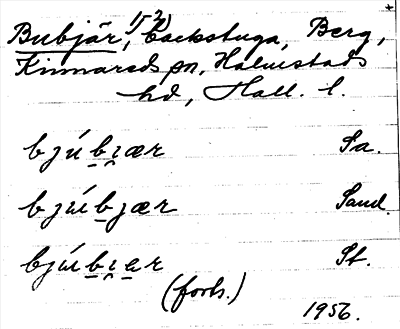 Bubjär, 152) backstuga, Berg,
Kinnareds sn, Halmstads
hd, Hall. l.
bjúbi̯ær Sa.
bjúbjær Sand.
bjúbi̯ɐr St.
(forb.)
1956.